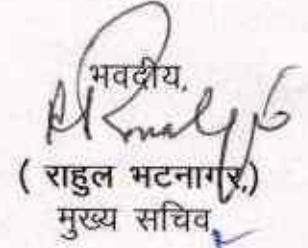 भवदीय,
( राहुल भटनागर )
मुख्य सचिव